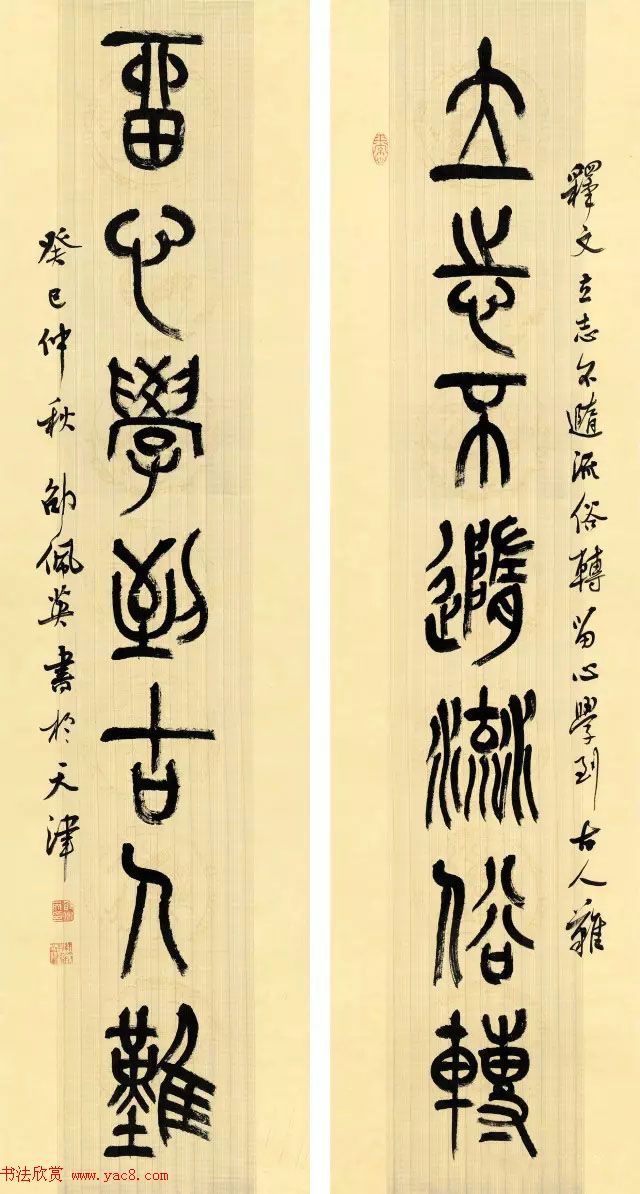 立志不隨流俗轉
釋文立志不隨流俗轉留心學到古人難
留心學到古人難
癸巳仲秋邵佩英書於天津
书法欣赏 www.yac8.com